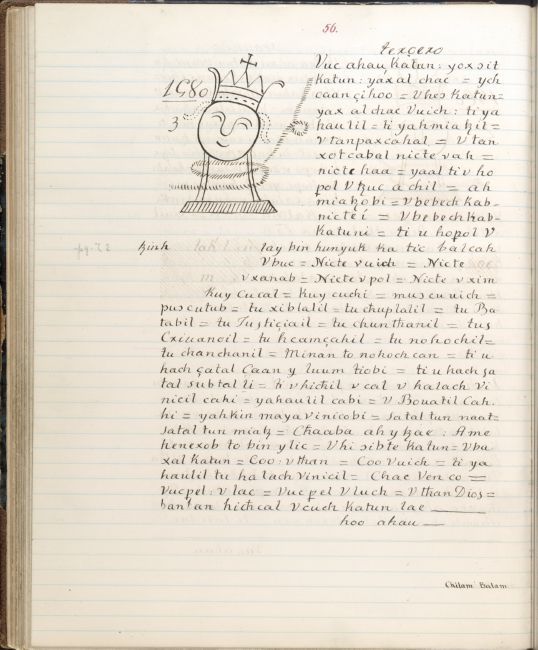 56.
terçero
1580
3
Vuc ahau Katun: yoxsit
Katun: yáxal chac = ych
caan çihoo = Vhes Katun=
yax al chac Vuich: ti ya
haulil = ti yahmiatzil=
v tanpaxcahal = V tan
xotcabal nicte vah =
nicte haa = yaal ti v ho
pol V tzuc a chil = ah
miatzobi = v bebech Kab-
nicteí = V bebech Kab-
Katuni = ti u hopol V
Kinh lay bin hunyuk ka tic balcah
V buc = Nicte vuich = Nicte
v xanab = Nicte v pol = Nicte v xim
Kuy Cucal = Kuy cuchi = mus cu uich =
pus cutub = tu xiblalil = tu chuplalil = tu Ba-
tabil = tu Justiçiail = tu chunthanil = tus
Cxiuanoil = tu hcamçahil = tu nohochil=
tu chanchanil = Minan to nohoch can = ti u
hach çatal Caan y luum tiobi = ti u hach sa
tal subtal li = ti v hichil v cal v halach Vi
nicil cahi = yahaulil cabi = v Bouatil Cah.
hi = yahkin maya vinicobi = satal tun naat=
satal tun miatz = Chaaba ah ytzae: Ame
henexob to bin ylic = V hi sibte Katun = V ba
xal Katun = Coo: v than = Coo Vuich = ti ya
haulil tu halach vinicil = Chac Ven co =
Vucpel: v lac = Vuc pel V luch = V than Dios =
ban tan hichcal v cuch Katun lae
hoo ahau
Chilam Balam